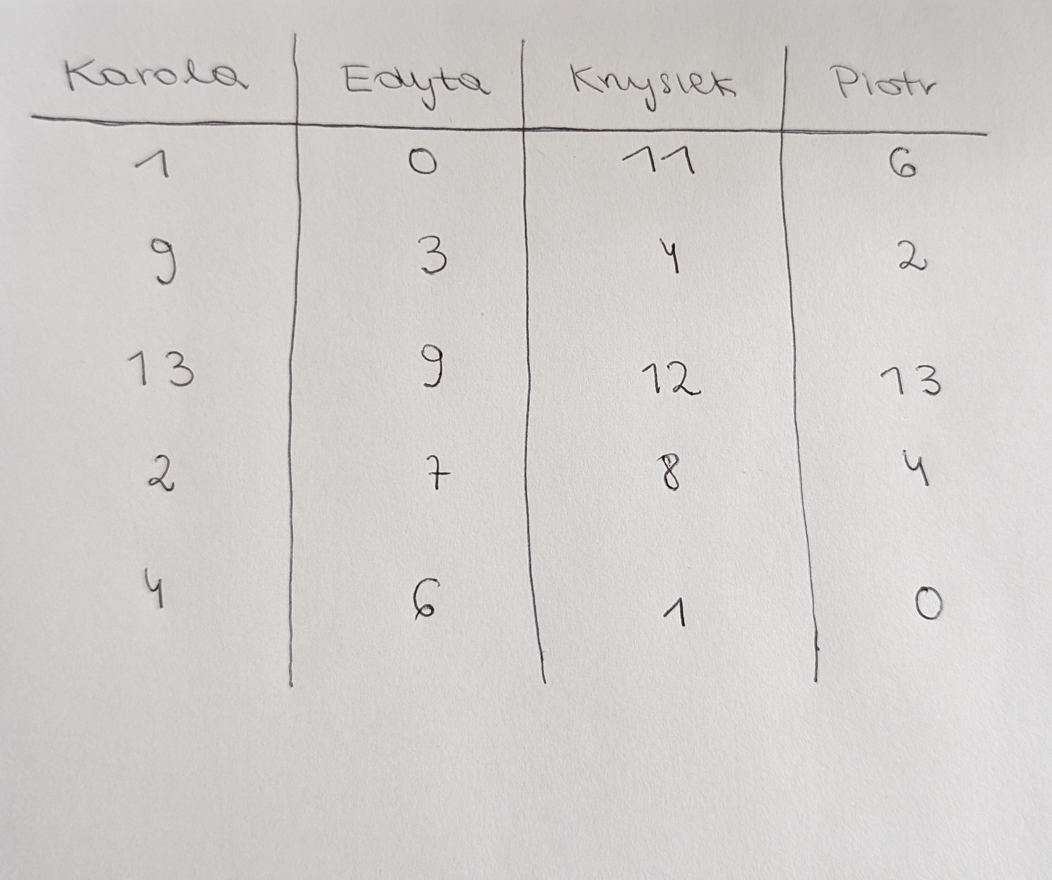 Karola Edyta Krysiek Piotr
1 0 11 6
9 3 4 2
13 9 12 13
2 7 8 4
4 6 1 0